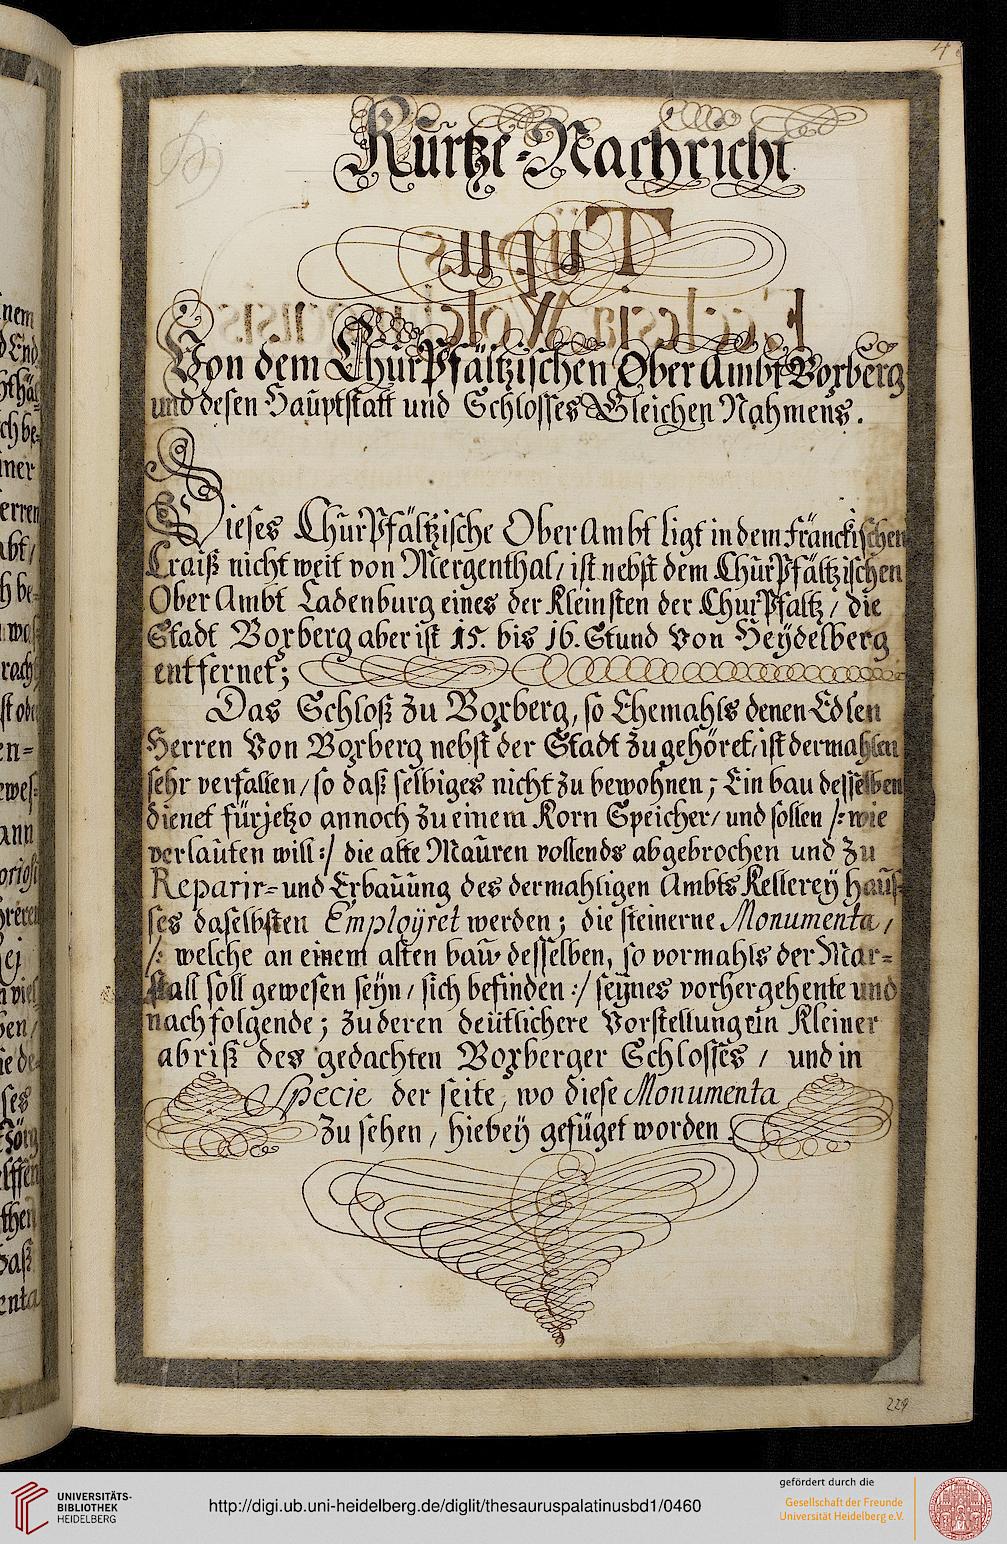 Kurtze-Nachricht
Typus
Ecclesia
Von dem ChurPfältzischen Ober Ambt Boxberg
und desen Hauptstatt und Schlosses Gleichen Nahmens.
Dieses ChurPfältzische Ober Ambt ligt in dem Fränckischen
Craiß nicht weit von Mergenthal, ist nebst dem ChurPfältzischen
Ober Ambt Ladenburg eines der Kleinsten der ChurPfaltz, die
Stadt Boxberg aber ist 15. bis 16. Stund Von Heÿdelberg
entfernet;
Das Schloß zu Boxberg, so Ehemahls denen Edlen
Herren Von Boxberg nebst der Stadt zugehöret, ist dermahlen
sehr verfallen, so daß selbiges nicht zu bewohnen; Ein bau desselben
dienet fürjetzo annoch zu einem Korn Speicher, und sollen /: wie
verlauten will :/ die alte Mauren vollends abgebrochen und zu
Reparir= und Erbauung des dermahligen Ambts Kellereÿ hauß=
ses daselbsten Emploÿret werden; die steinerne Monumenta,
/: welche an einem alten bau desselben, so vormahls der Mar=
stall soll gewesen seÿn, sich befinden :/ seÿnes vorhergehente und
nachfolgende; zu deren deutlichere Vorstellung ein Kleiner
abriß des gedachten Boxberger Schlosses, und in
Specie der seite, wo diese Monumenta
zu sehen, hiebeÿ gefüget worden.
229
UNIVERSITÄTS-
BIBLIOTHEK
HEIDELBERG
http://digi.ub.uni-heidelberg.de/diglit/thesauruspalatinusbd1/0460
gefördert durch die
Gesellschaft der Freunde
Universität Heidelberg e.V.